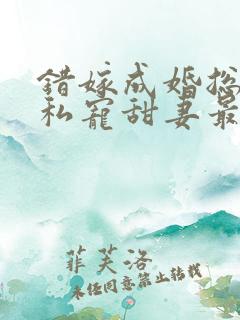 错嫁成婚总
私宠甜妻最
菲芙洛
未经同意禁止转载